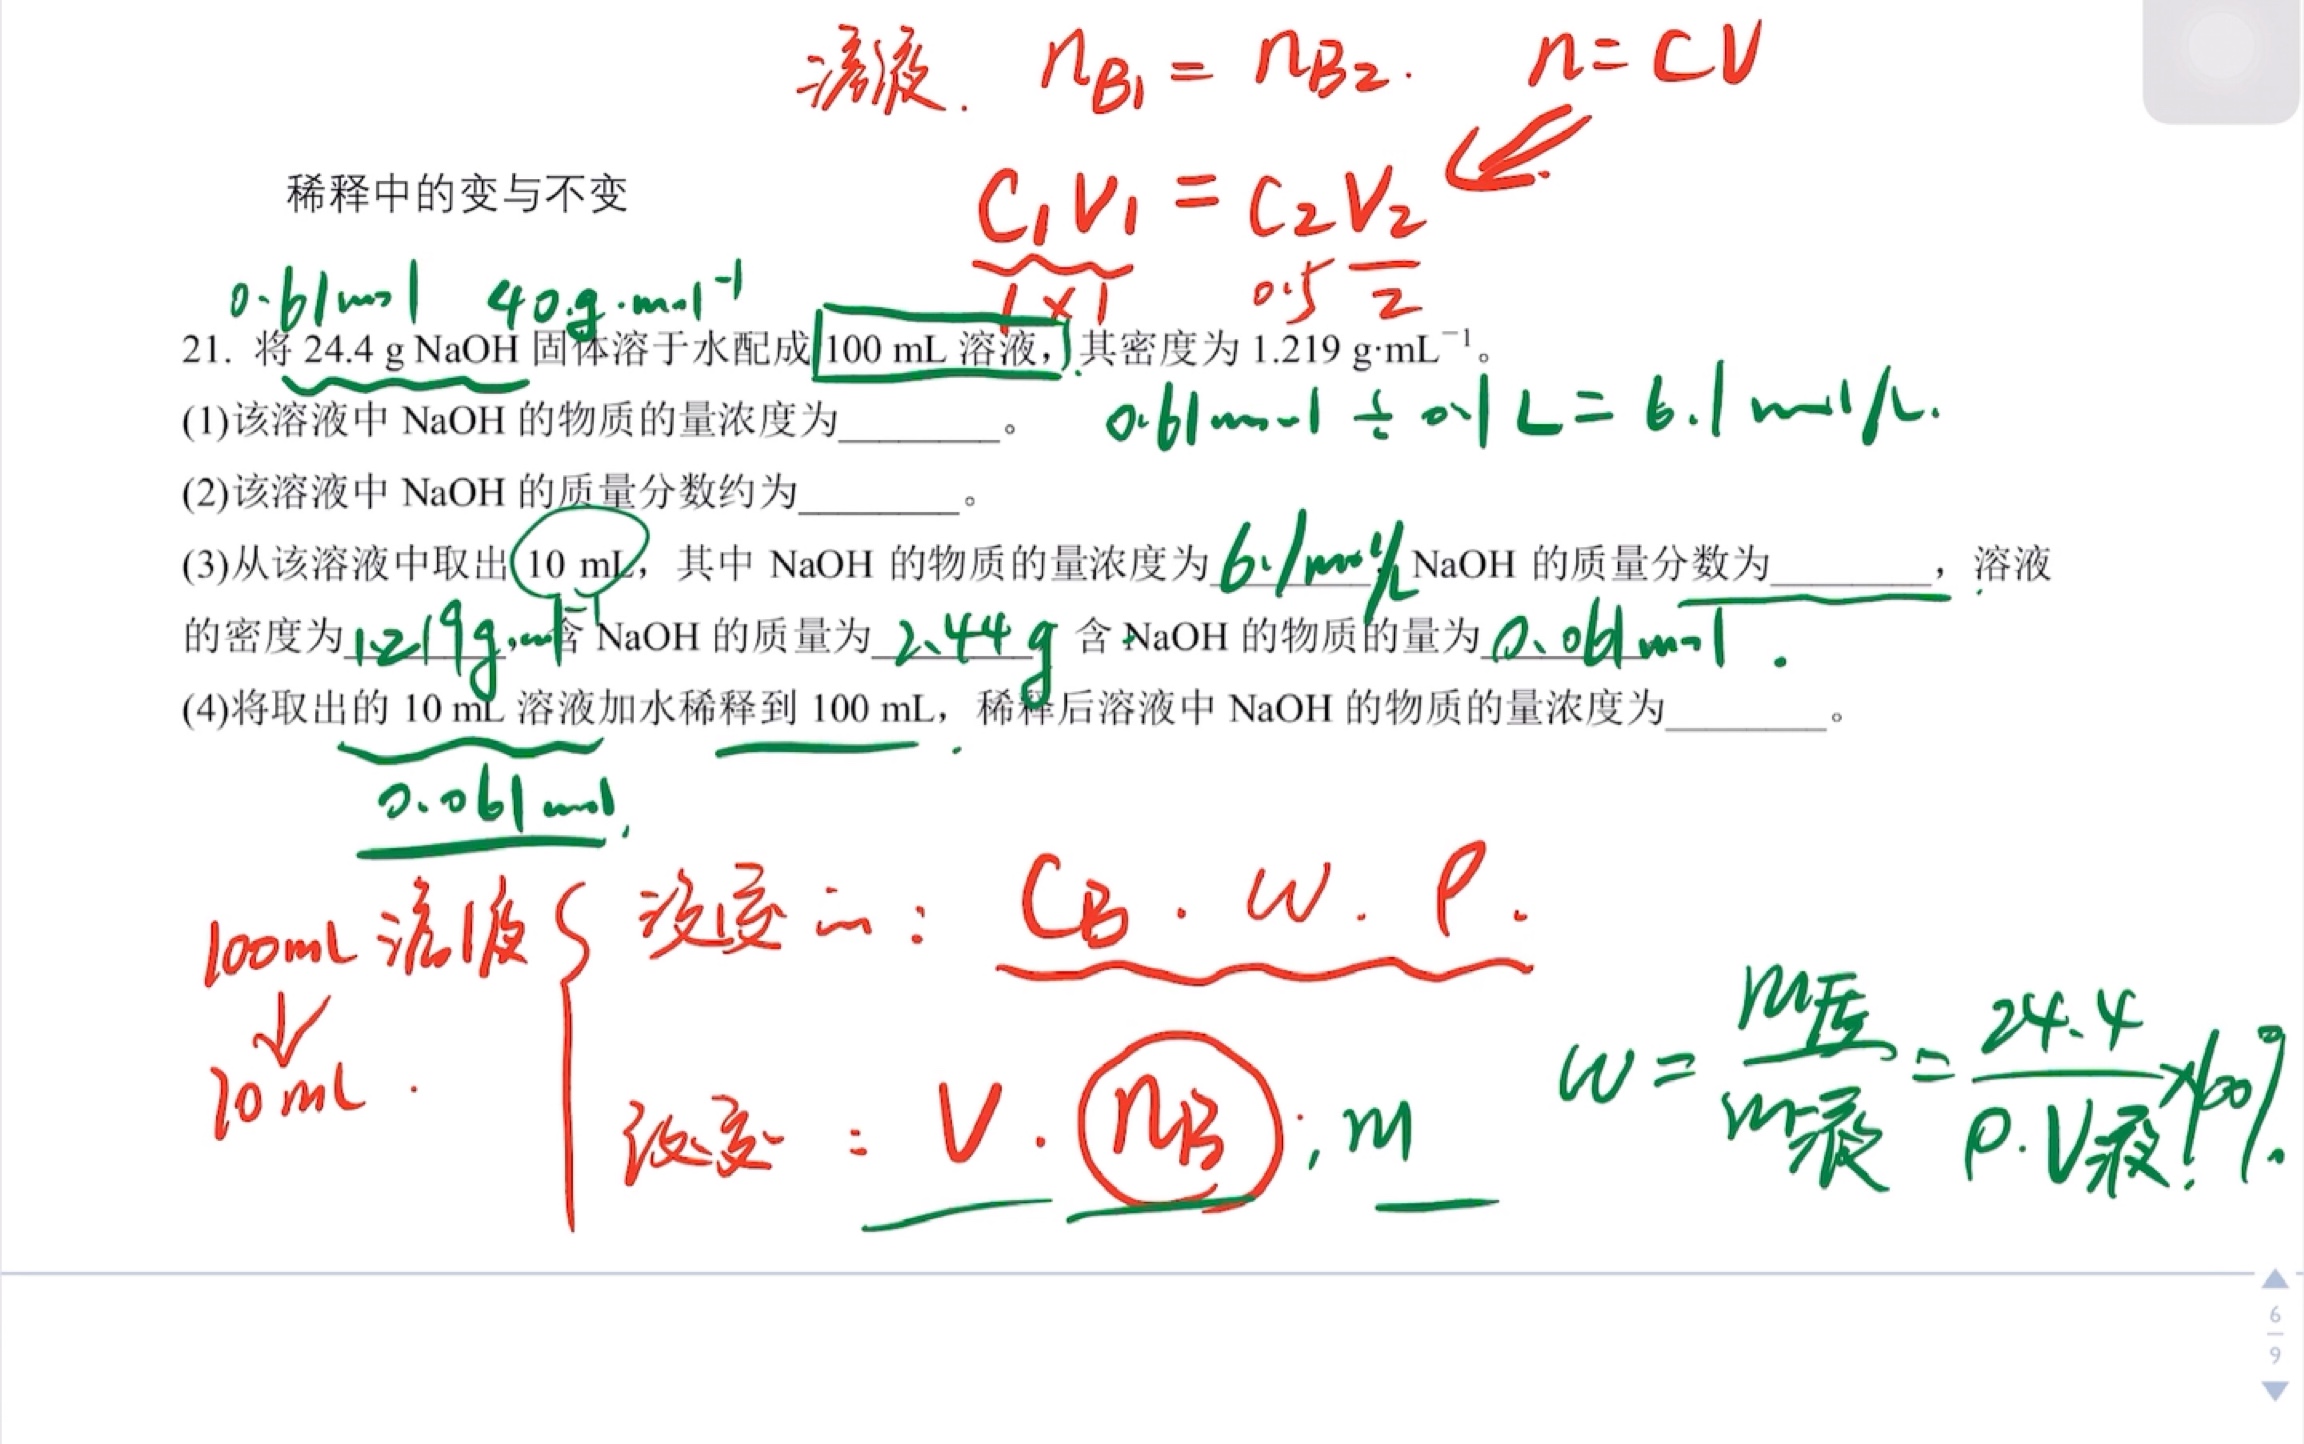 溶液. nB1 = nB2. n = CV
稀释中的变与不变
C1V1 = C2V2
1×1 0.5 2
0.61mol 40.g·mol⁻¹
21. 将 24.4 g NaOH 固体溶于水配成 100 mL 溶液，其密度为 1.219 g·mL⁻¹。
0.61mol ÷ 0.1L = 6.1mol/L.
(1)该溶液中 NaOH 的物质的量浓度为________。
(2)该溶液中 NaOH 的质量分数约为________。
(3)从该溶液中取出 10 mL，其中 NaOH 的物质的量浓度为 6.1mol/L NaOH 的质量分数为________，溶液
的密度为 1.219g·ml⁻¹ 含 NaOH 的质量为 2.44g 含 NaOH 的物质的量为 0.061mol.
(4)将取出的 10 mL 溶液加水稀释到 100 mL，稀释后溶液中 NaOH 的物质的量浓度为________。
0.061mol
100mL 溶液 没变的: CB. w. ρ.
↓
10mL.
改变: V. nB; m
w = m质/m液 = 24.4/ρ.V液 ×100%.
6
9